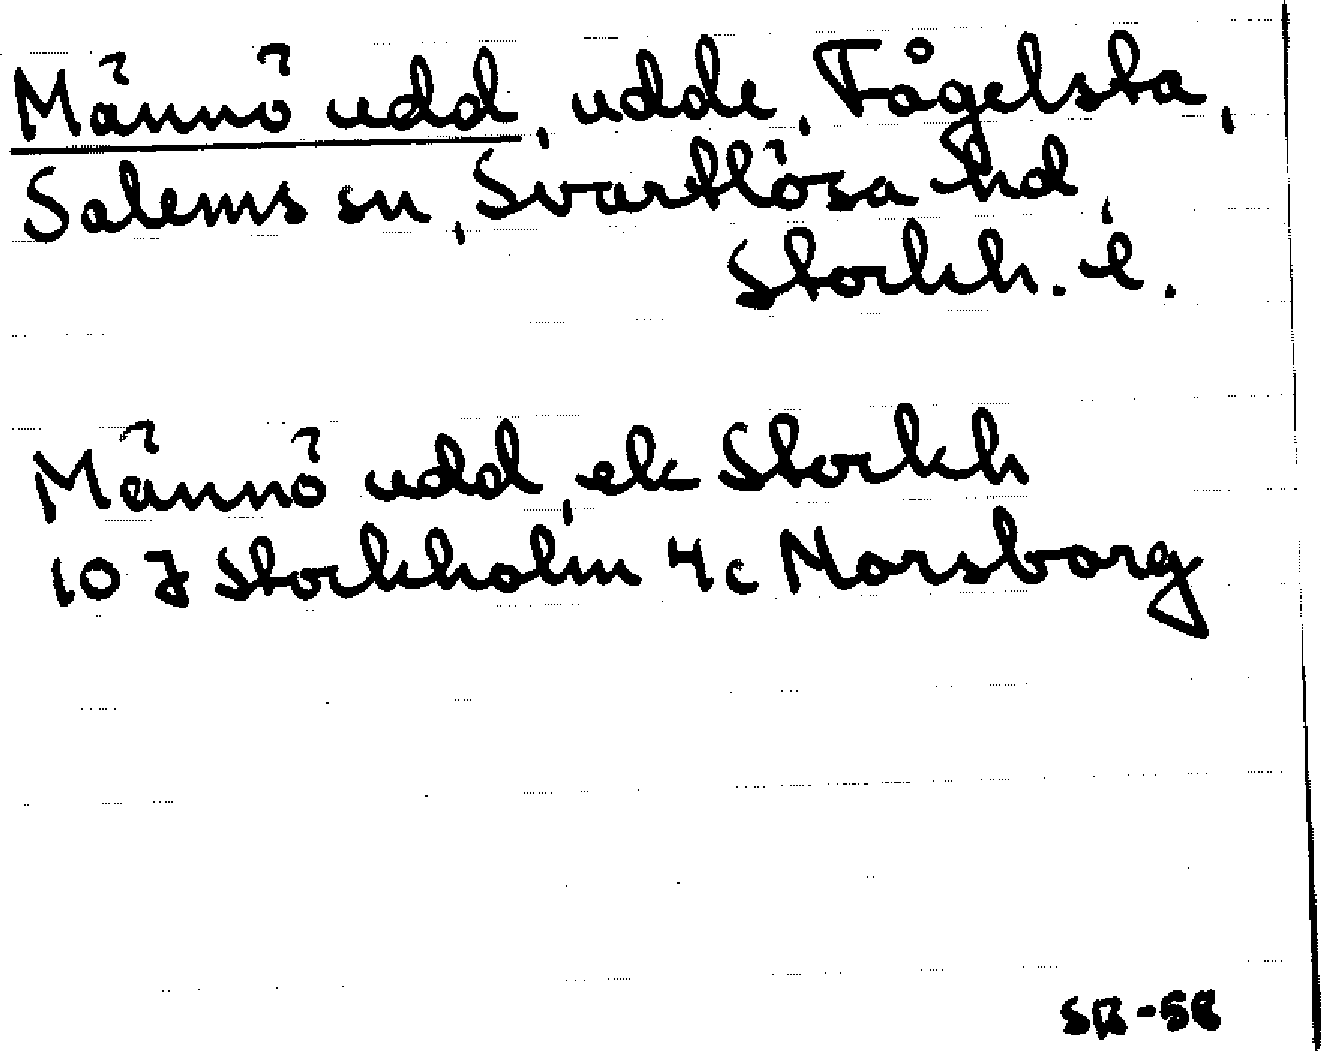 Männö udd, udde, Fågelsta,
Salems sn, Svartlösa hd,
Stockh. l.
Männö udd, ek Stockh
10 J Stockholm 4c Norsborg